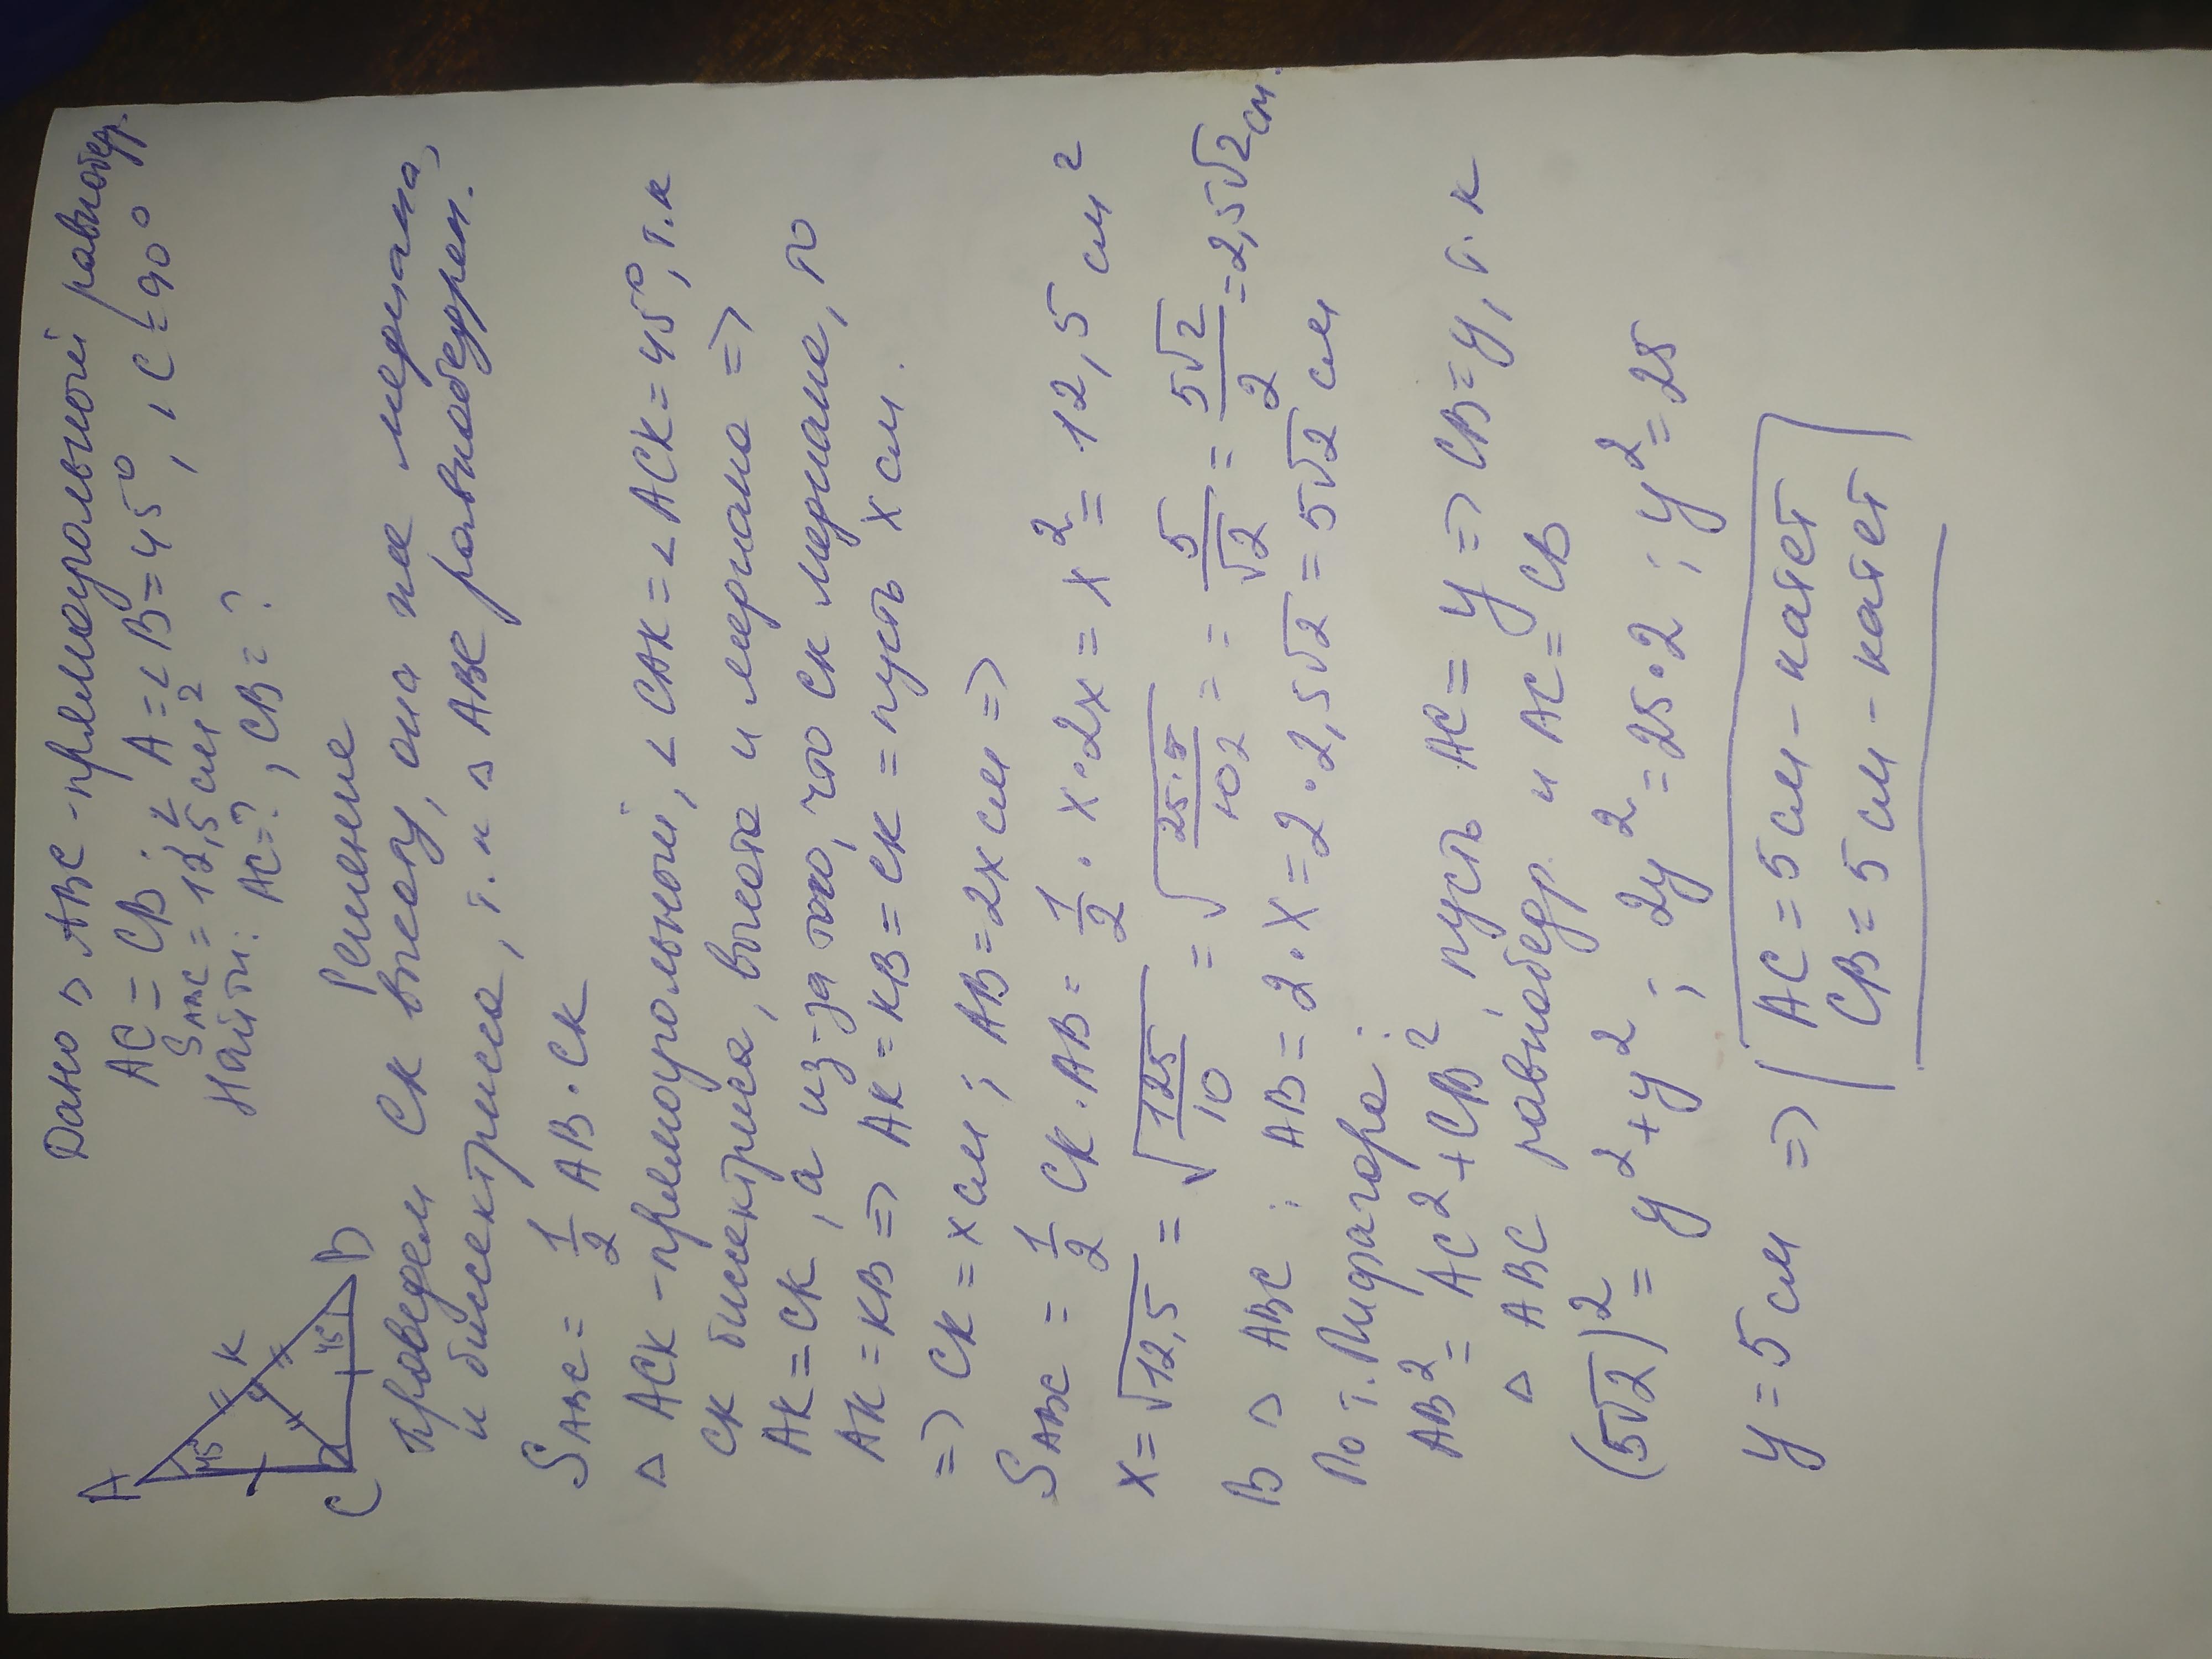 Дано △ ABC - прямоугольный равнобедр.
AC = CB. ∠A = ∠B = 45°, ∠C = 90°
S ABC = 12,5 см²
Найти: AC = ?, CB = ?
A
45°
K
C
45°
B
Решение
проведем CK высоту, она же медиана,
и биссектриса, т.к △ ABC равнобедрен.
S ABC = 1/2 AB · CK
△ ACK - прямоугольный, ∠CAK = ∠ACK = 45°, т.к
CK биссектриса, высота и медиана =>
AK = CK, а из-за того, что CK медиана, то
AK = KB => AK = KB = CK = пусть x см.
=> CK = x см; AB = 2x см =>
S ABC = 1/2 CK · AB = 1/2 · x · 2x = x² = 12,5 см²
x = √12,5 = √(125/10) = √(25·5/10 2) = = 5/√2 = 5√2/2 = 2,5√2 см.
В △ ABC: AB = 2 · x = 2 · 2,5√2 = 5√2 см
По т. Пифагора:
AB² = AC² + CB², пусть AC = y => CB = y, т.к
△ ABC равнобедр. и AC = CB
(5√2)² = y² + y²; 2y² = 25 · 2; y² = 25
y = 5 см => AC = 5 см - катет
CB = 5 см - катет